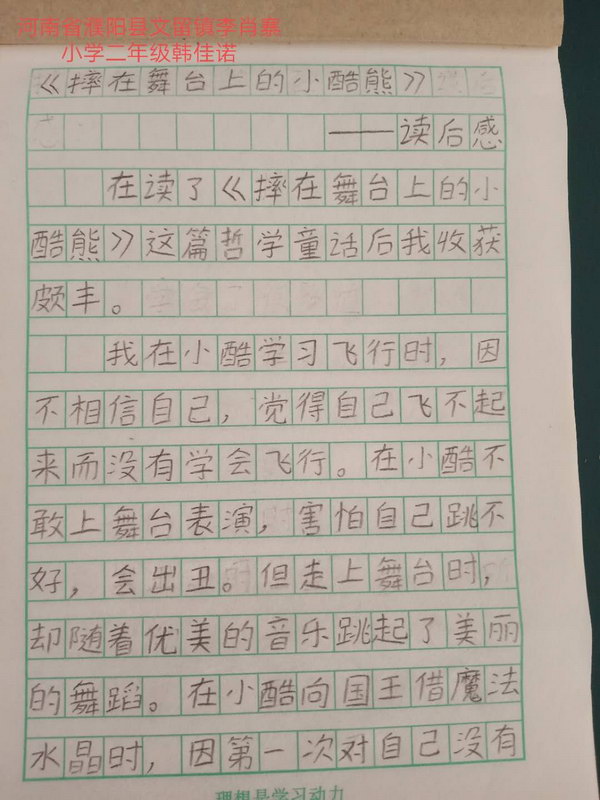 河南省濮阳县文留镇李肖寨
小学二年级韩佳诺
《摔在舞台上的小酷熊》
——读后感
在读了《摔在舞台上的小
酷熊》这篇哲学童话后我收获
颇丰。
我在小酷学习飞行时，因
不相信自己，觉得自己飞不起
来而没有学会飞行。在小酷不
敢上舞台表演，害怕自己跳不
好，会出丑。但走上舞台时，
却随着优美的音乐跳起了美丽
的舞蹈。在小酷向国王借魔法
水晶时，因第一次对自己没有
理想是学习动力